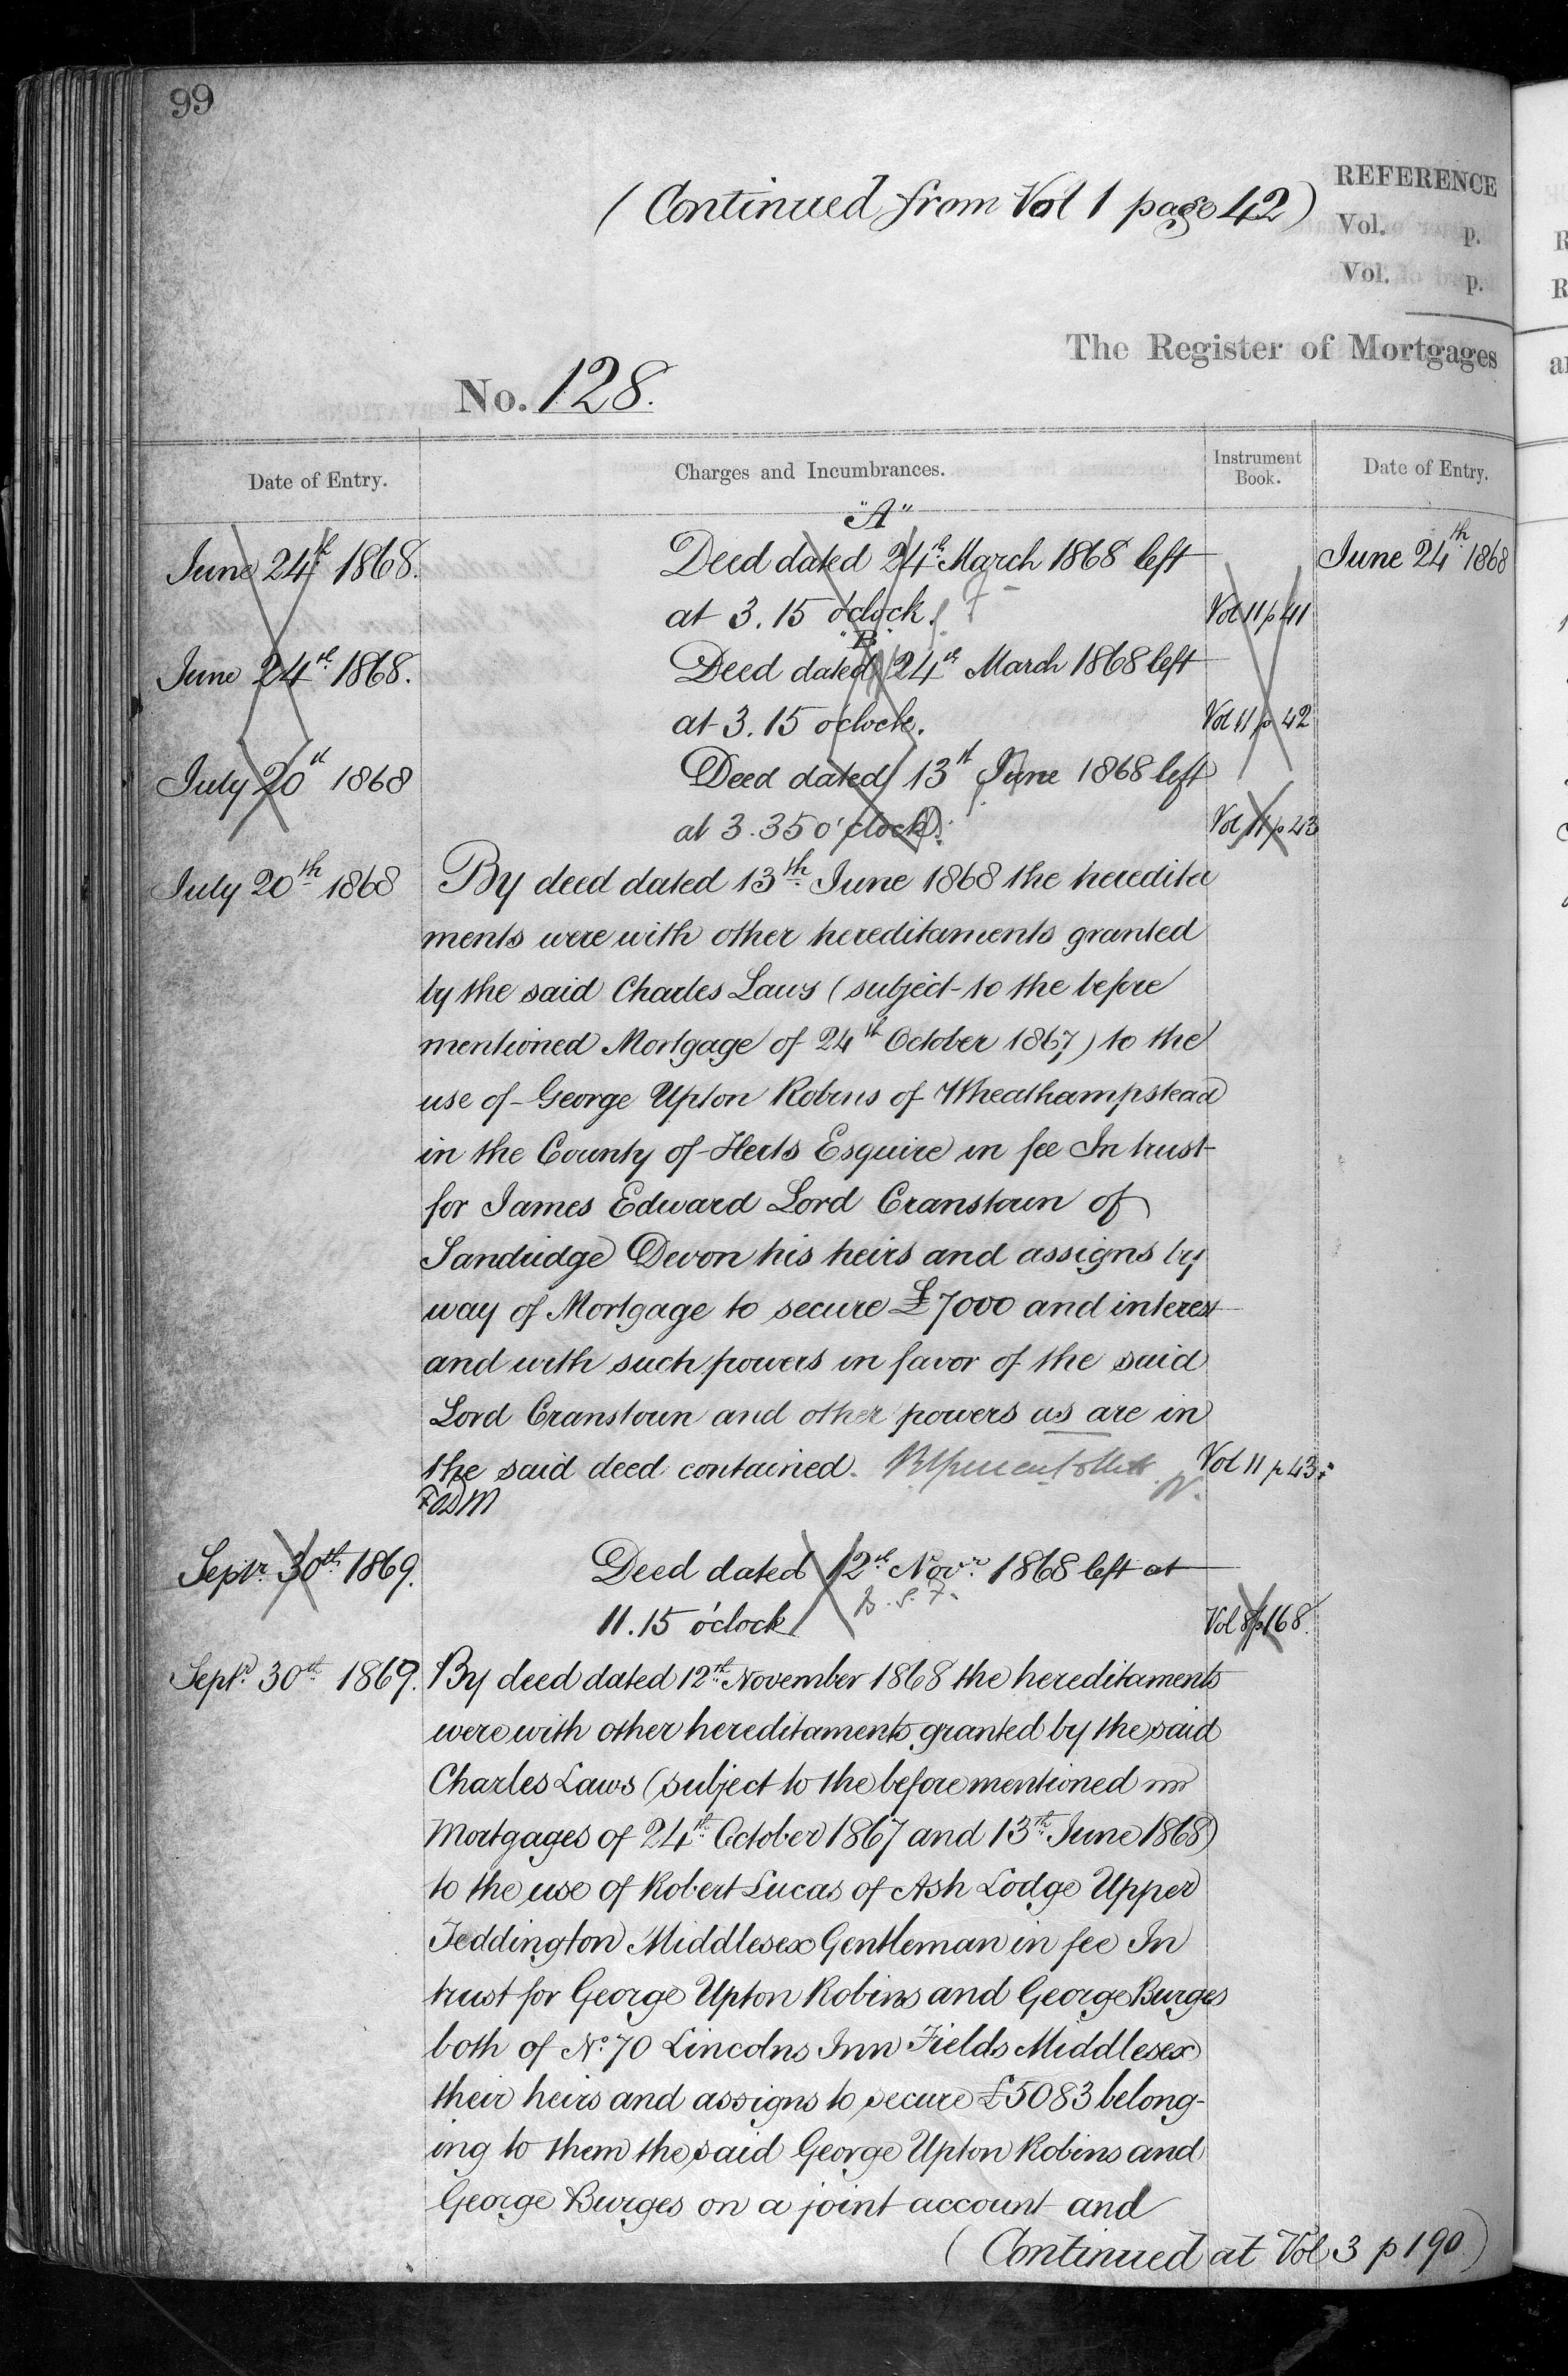 99
(Continued from Vol 1 page 42)
REFERENCE
Vol. p.
Vol. p.
The Register of Mortgages
No. 128.
Date of Entry.
Charges and Incumbrances.
Instrument Book.
Date of Entry.
"A"
June 24th 1868. Deed dated 24th March 1868 left June 24th 1868
at 3.15 o'clock. Vol 11 p 41
"B"
June 24th 1868. Deed dated 24th March 1868 left
at 3.15 o'clock. Vol 11 p 42
July 20th 1868 Deed dated 13th June 1868 left
at 3.35 o'clock. Vol 11 p 43
July 20th 1868 By deed dated 13th June 1868 the heredita
ments were with other hereditaments granted
by the said Charles Laws (subject to the before
mentioned Mortgage of 24th October 1867) to the
use of George Upton Robins of Wheathampstead
in the County of Herts Esquire in fee In trust
for James Edward Lord Cranstoun of
Sandridge Devon his heirs and assigns by
way of Mortgage to secure £7000 and interest
and with such powers in favor of the said
Lord Cranstoun and other powers as are in
the said deed contained. Vol 11 p 43
Septr. 30th 1869. Deed dated 12th Novr 1868 left at
11.15 o'clock Vol 8 p 168.
Septr. 30th 1869. By deed dated 12th November 1868 the hereditaments
were with other hereditaments granted by the said
Charles Laws (subject to the before mentioned
Mortgages of 24th October 1867 and 13th June 1868)
to the use of Robert Lucas of Ash Lodge Upper
Teddington Middlesex Gentleman in fee In
trust for George Upton Robins and George Burges
both of No. 70 Lincolns Inn Fields Middlesex
their heirs and assigns to secure £5083 belong-
ing to them the said George Upton Robins and
George Burges on a joint account and
(Continued at Vol 3 p 190)